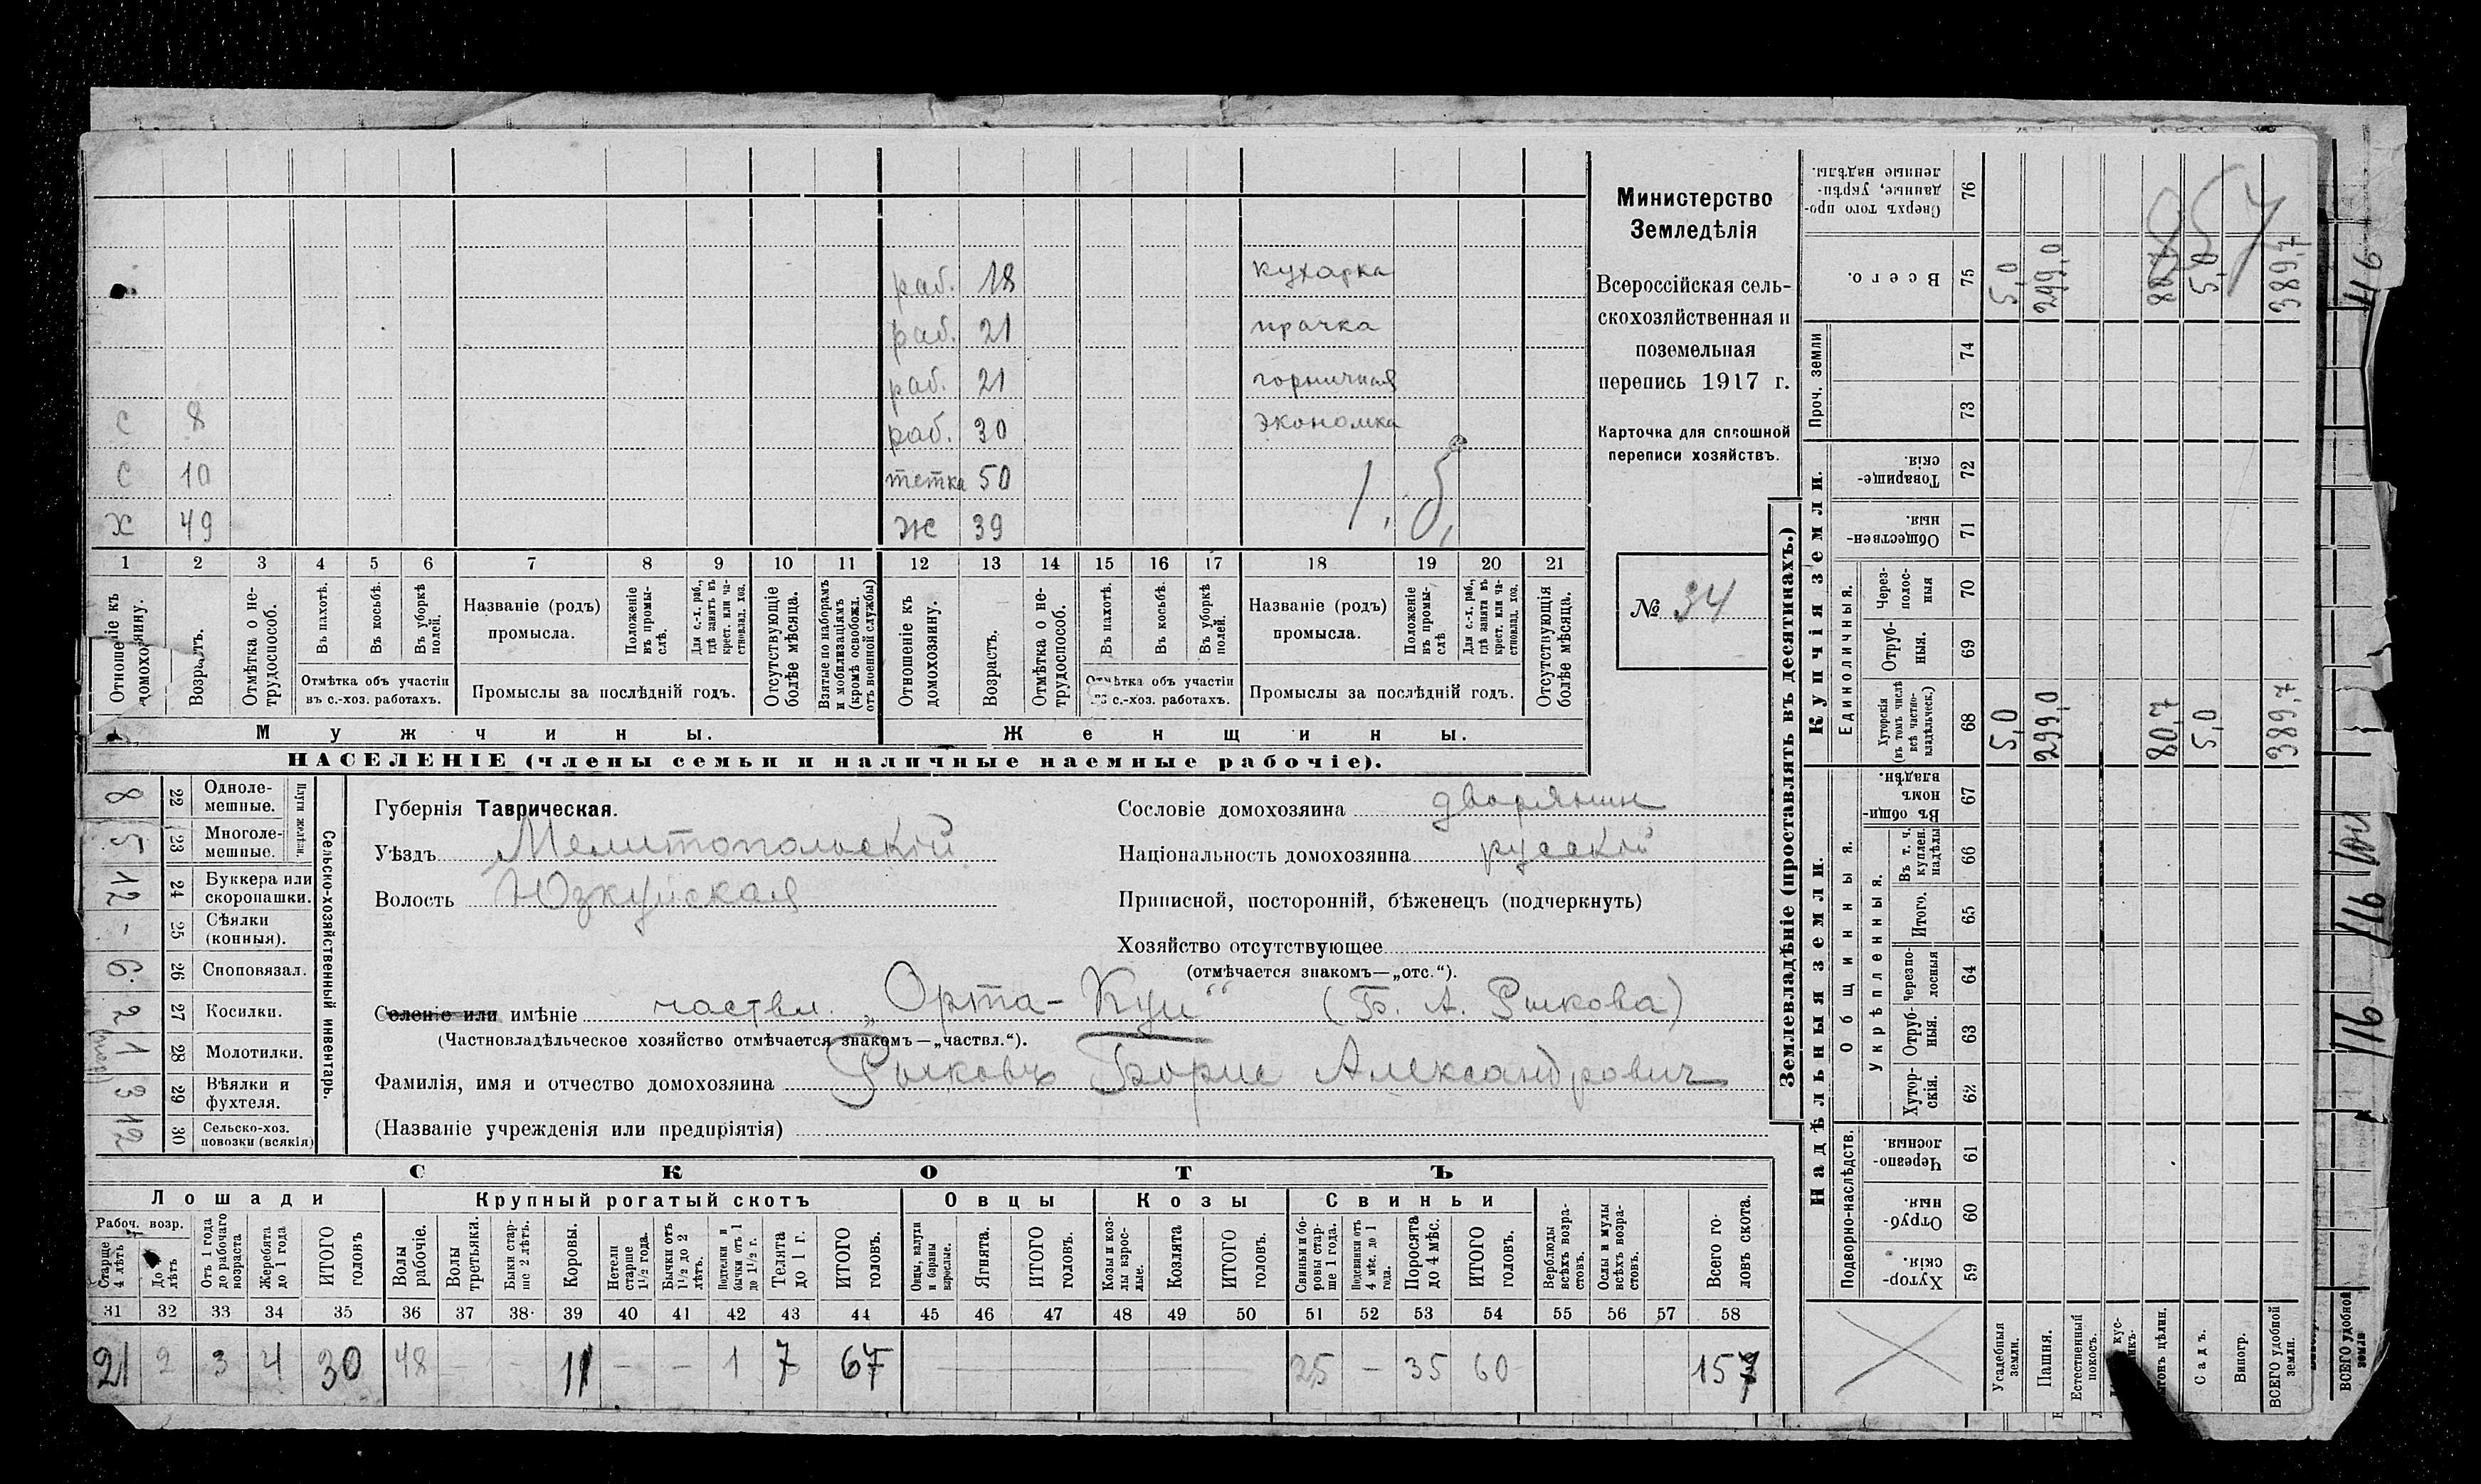 Министерство
Земледѣлія
Всероссійская сель-
скохозяйственная и
поземельная
перепись 1917 г.
Карточка для сплошной
переписи хозяйствъ.
№ 34
раб. 18 кухарка
раб. 21 прачка
раб. 21 горничная
С 8 раб. 30 экономка
С 10 тетка 50
Х 49 Ж 39
1 2 3 4 5 6 7 8 9 10 11 12 13 14 15 16 17 18 19 20 21
Отношеніе къ домохозяину.
Возрастъ.
Отмѣтка о не-
трудоспособ.
Въ пахотѣ.
Въ косьбѣ.
Въ уборкѣ
полей.
Отмѣтка объ участіи
въ с.-хоз. работахъ.
Названіе (родъ)
промысла.
Положеніе
въ промы-
слѣ.
Для с.-х. раб.,
гдѣ занятъ въ
крест. или ча-
стновлад. хоз.
Промыслы за послѣдній годъ.
Отсутствующіе
болѣе мѣсяца.
Взятые по наборамъ
и мобилизаціямъ
(кромѣ освобожд.
отъ военной службы)
Отношеніе къ
домохозяину.
Возрастъ.
Отмѣтка о не-
трудоспособ.
Въ пахотѣ.
Въ косьбѣ.
Въ уборкѣ
полей.
Отмѣтка объ участіи
въ с.-хоз. работахъ.
Названіе (родъ)
промысла.
Положеніе
въ промы-
слѣ
Для с.-х. раб.,
гдѣ занята въ
крест. или ча-
стновлад. хоз.
Промыслы за послѣдній годъ.
Отсутствующія
болѣе мѣсяца.
Мужчины. Женщины.
НАСЕЛЕНІЕ (члены семьи и наличные наемные рабочіе).
Сельско-хозяйственный инвентарь.
Плуги желѣзн.
8 22 Одноле-
мешные.
5 23 Многоле-
мешные.
12 24 Буккера или
скоропашки.
- 25 Сѣялки
(конныя).
6 26 Сноповязал.
2 27 Косилки.
1 28 Молотилки.
3 29 Вѣялки и
фухтеля.
12 30 Сельско-хоз.
повозки (всякія)
Губернія Таврическая.
Уѣздъ Мелитопольскій
Волость Юзкуйская
Сословіе домохозяина дворянин
Національность домохозяина русскій
Приписной, посторонній, бѣженецъ (подчеркнуть)
Хозяйство отсутствующее
(отмѣчается знакомъ—„отс.“).
Селеніе или имѣніе частвл. „Орта-Куи“ (Б. А. Рыкова)
(Частновладѣльческое хозяйство отмѣчается знакомъ—„частвл.“).
Фамилія, имя и отчество домохозяина Рыковъ Борис Александрович
(Названіе учрежденія или предпріятія)
СКОТЪ
Лошади
Рабоч. возр.
Старше
4 лѣтъ
До
лѣтъ
Отъ 1 года
до рабочаго
возраста
Жеребята
до 1 года
ИТОГО
головъ
Крупный рогатый скотъ
Волы
рабочіе.
Волы
третьяки.
Быки стар-
ше 2 лѣтъ.
Коровы.
Нетели
старше
1½ года.
Бычки отъ
1½ до 2
лѣтъ.
Подтелки и
бычки отъ 1
до 1½ г.
Телята
до 1 г.
ИТОГО
головъ.
Овцы
Овцы, валухи
и бараны
взрослые.
Ягнята.
ИТОГО
головъ.
Козы
Козы и коз-
лы взрос-
лые.
Козлята
ИТОГО
головъ.
Свиньи
Свиньи и бо-
ровы стар-
ше 1 года.
Подсвинки отъ
4 мѣс. до 1
года.
Поросята
до 4 мѣс.
ИТОГО
головъ.
Верблюды
всѣхъ возра-
стовъ.
Ослы и мулы
всѣхъ возра-
стовъ.
Всего го-
ловъ скота.
31 32 33 34 35 36 37 38 39 40 41 42 43 44 45 46 47 48 49 50 51 52 53 54 55 56 57 58
21 2 3 4 30 48 - - 11 - - 1 7 67 25 - 35 60 157
Землевладѣніе (проставлять въ десятинахъ.)
Надѣльныя земли.
Подворно-наслѣдств.
Хутор-
скія. 59
Отруб-
ныя. 60
Черезпо-
лосныя. 61
Общинныя.
Укрѣпленныя.
Хутор-
скія. 62
Отруб-
ныя. 63
Черезпо-
лосныя 64
Итого. 65
Въ т. ч.
куплен.
надѣлы 66
Въ общи-
номъ
владѣн. 67
Купчія земли.
Единоличныя.
Хуторскія
(въ томъ числѣ
всѣ частно-
владѣльческ.) 68
Отруб-
ныя. 69
Через-
полос-
ныя 70
Обществен-
ныя. 71
Товарище-
скія. 72
Проч. земли
73 74
Всего. 75
Сверхъ того про-
данные, укрѣп-
ленные надѣлы. 76
Усадебныя
земли. 5,0 5,0
Пашня. 299,0 299,0
Естественный
покосъ.
80,7
Садъ. 5,0 5,0
Виногр.
ВСЕГО удобной
земли. 389,7 389,7
ВСЕГО удобной
земли